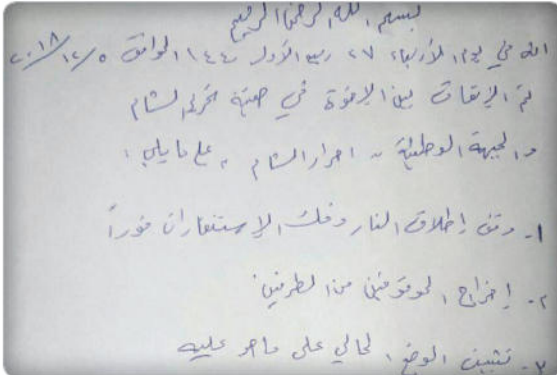 بسم الله الرحمن الرحيم
انه في يوم الأربعاء ٢٧ ربيع الأول ١٤٤٠ الموافق ٢٠١٨/١٢/٥
تم الإتفاق بين الإخوة في هيئة تحرير الشام
والجبهة الوطنية - احرار الشام ، على مايلي :
١- وقف إطلاق النار وفك الإستنفارات فوراً
٢- إخراج الموقوفين من الطرفين .
٣- تثبيت الوضع الحالي على ماهو عليه